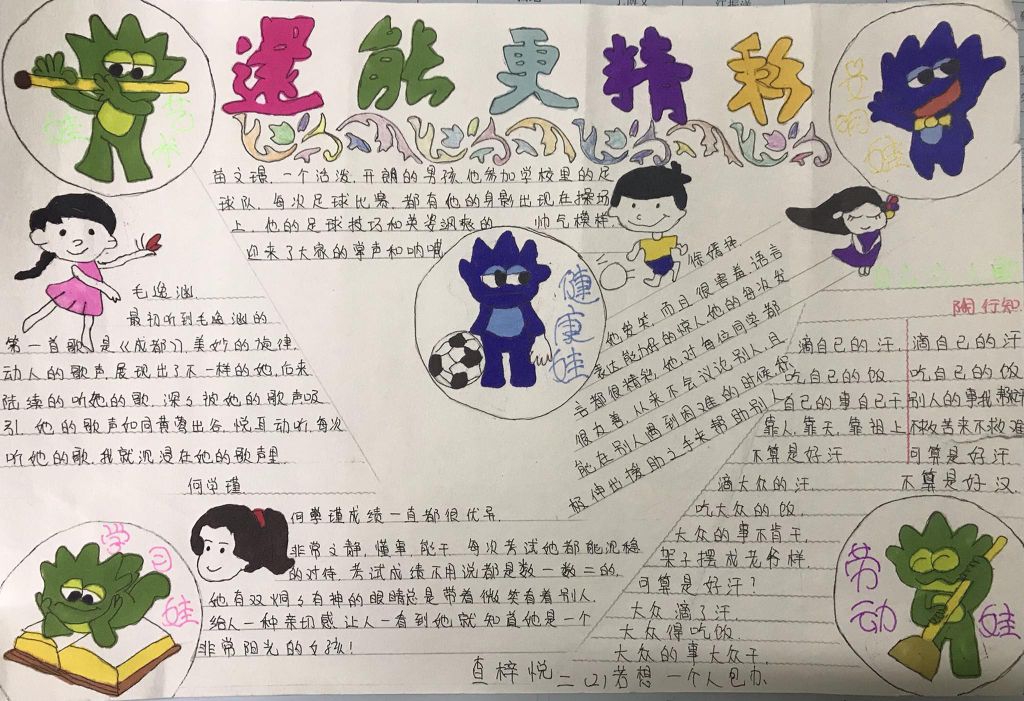 還能更精彩
艺术娃
文明娃
苗文璟,一个活泼,开朗的男孩,他参加学校里的足
球队,每次足球比赛,都有他的身影出现在操场
上,他的足球技巧和英姿飒爽的 帅气模样,
迎来了大家的掌声和呐喊
毛逸涵
最初听到毛逸涵的
第一首歌,是《成都》,美妙的旋律,
动人的歌声,展现出了不一样的她,后来
陆续的听她的歌,深深被她的歌声吸
引,她的歌声如同黄莺出谷,悦耳动听,每次
听她的歌,我就沉浸在她的歌声里
何学瑾
健康娃
他爱笑,而且很害羞,语言
表达能力好的惊人,他的每次发
言都很精彩,他对每位同学都
很友善,从来不会议论别人,且
能在别人遇到困难的时候积
极伸出援助之手来帮助别人
陶行知
滴自己的汗,
吃自己的饭
自己的事自己干
靠人,靠天,靠祖上
不算是好汗
滴自己的汗
吃自己的饭
别人的事我帮忙
不救苦来不救难
可算是好汗
不算是好汉
滴大众的汗
吃大众的饭,
大众的事不肯干,
架子摆成老爷样,
可算是好汗?
大众滴了汗,
大众得吃饭
大众的事大众干,
若想一个人包办
何學瑾成绩一直都很优异,
非常文静,懂事,能干,每次考试他都能沉稳
的对待,考试成绩不用说都是数一数二的,
她有双炯炯有神的眼睛总是带着微笑看着别人,
给人一种亲切感,让人一看到她就知道她是一个
非常阳光的女孩!
学习娃
劳动娃
查梓悦 二(2)